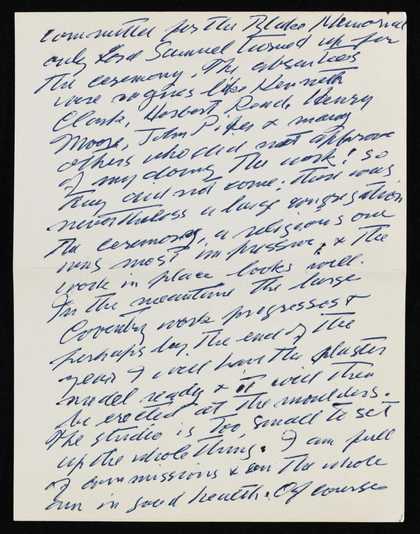 committee for the Blake Memorial
only Lord Samuel turned up for
the ceremony. The absentees
were rogues like Kenneth
Clark, Herbert Read, Henry
Moore, John Piper & many
others who did not approve
of my doing the work! so
they did not come. there was
nevertheless a large congregation
The ceremony, a religious one
was most impressive, & the
work in place looks well.
In the meantime the large
Coventry work progresses &
perhaps by the end of the
year I will have the plaster
model ready & it will then
be erected at the moulders.
The studio is too small to set
up the whole thing. I am full
of commissions & on the whole
am in good health. Of course